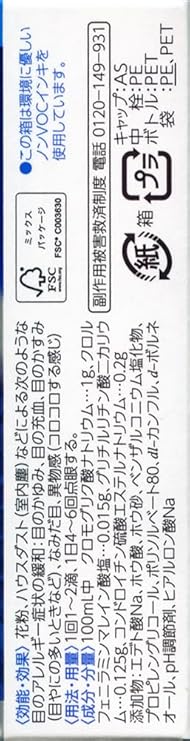 ●この箱は環境に優しい
ノンVOCインキを
使用しています。
ミックス
パッケージ
FSC® C003630
FSC
副作用被害救済制度 電話 0120-149-931
キャップ:AS
中　栓:PE
ボトル:PET
PE、PET
プラ
紙
箱
〈効能・効果〉花粉、ハウスダスト(室内塵)などによる次のような
目のアレルギー症状の緩和:目のかゆみ、目の充血、目のかすみ
(目やにの多いときなど)、なみだ目、異物感(コロコロする感じ)
〈用法・用量〉1回1〜2滴、1日4〜6回点眼する。
〈成分・分量〉100mL中　クロモグリク酸ナトリウム…1g、クロル
フェニラミンマレイン酸塩…0.015g、グリチルリチン酸二カリウ
ム…0.125g、コンドロイチン硫酸エステルナトリウム…0.2g
添加物:エデト酸Na、ホウ酸、ホウ砂、ベンザルコニウム塩化物、
プロピレングリコール、ポリソルベート80、dl-カンフル、d-ボルネ
オール、pH調節剤、ヒアルロン酸Na